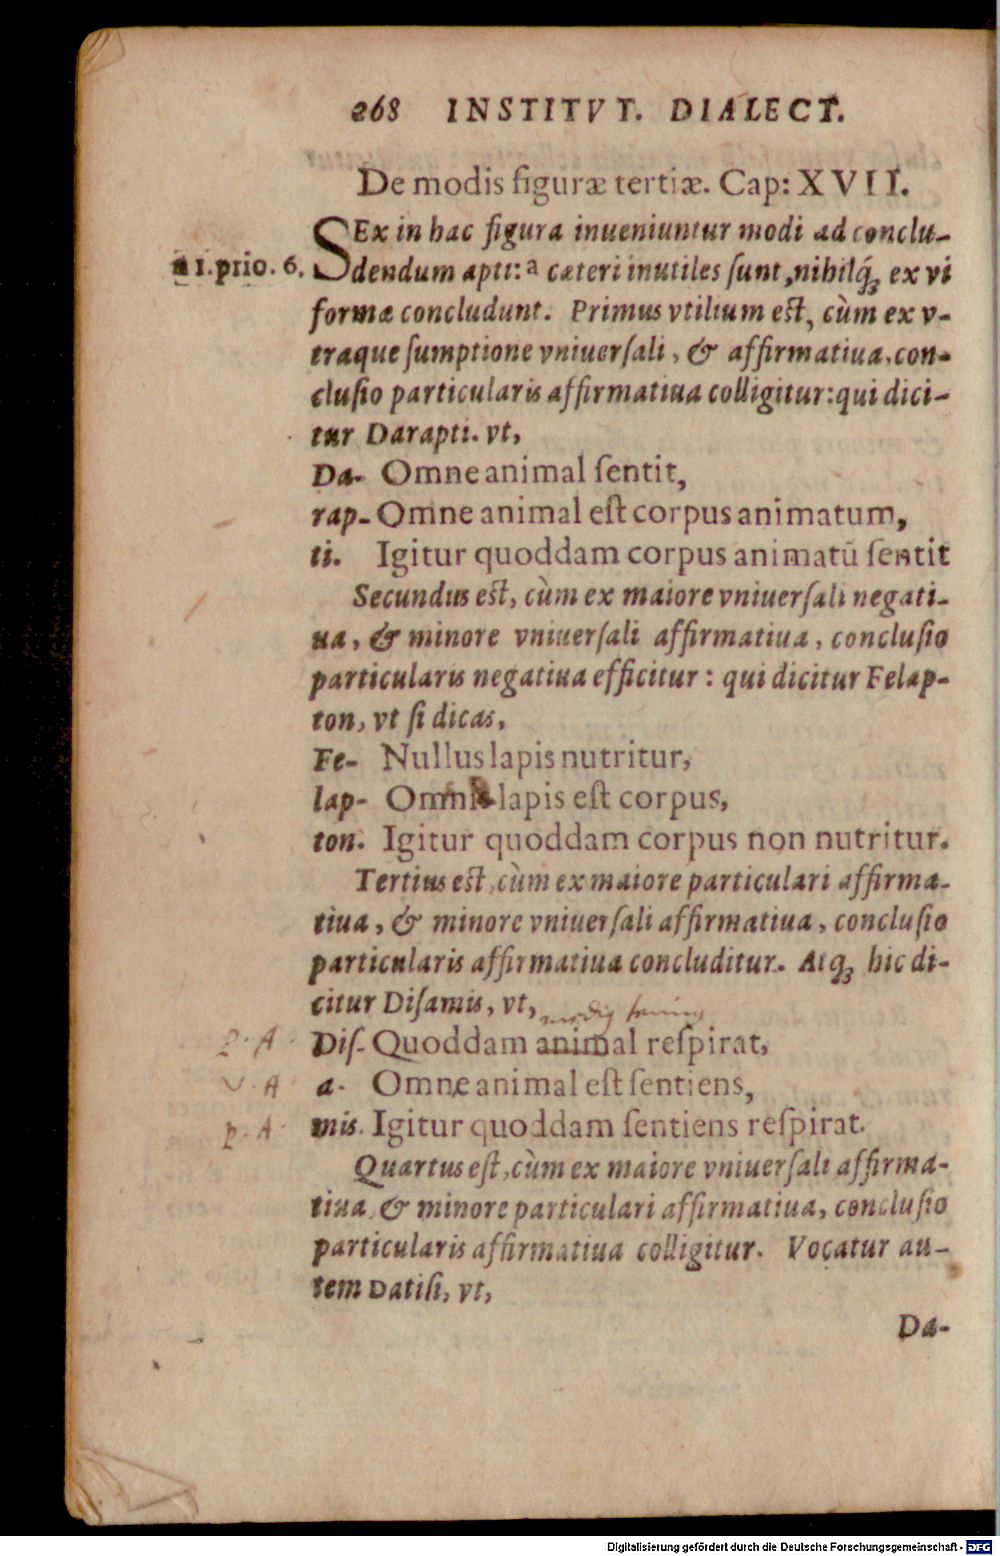 268 INSTITVT. DIALECT.
De modis figuræ tertiæ. Cap: XVII.
SEx in hac figura inueniuntur modi ad conclu-
a 1. prio. 6.
dendum apti: a cæteri inutiles ſunt, nihilq́; ex vi
formæ concludunt. Primus vtilium est, cùm ex v-
traque ſumptione vniuerſali, & affirmatiua, con-
cluſio particularis affirmatiua colligitur: qui dici-
tur Darapti. vt,
Da- Omne animal ſentit,
rap- Omne animal eſt corpus animatum,
ti. Igitur quoddam corpus animatū ſentit
Secundus est, cùm ex maiore vniuerſali negati-
ua, & minore vniuerſali affirmatiua, concluſio
particularis negatiua efficitur: qui dicitur Felap-
ton, vt ſi dicas,
Fe- Nullus lapis nutritur,
lap- Omnis lapis eſt corpus,
ton. Igitur quoddam corpus non nutritur.
Tertius est, cùm ex maiore particulari affirma-
tiua, & minore vniuerſali affirmatiua, concluſio
particularis affirmatiua concluditur. Atq; hic di-
citur Diſamis, vt,
P. A. Diſ- Quoddam animal reſpirat,
V. A. a- Omne animal eſt ſentiens,
P. A. mis. Igitur quoddam ſentiens reſpirat.
Quartus eſt, cùm ex maiore vniuerſali affirma-
tiua, & minore particulari affirmatiua, concluſio
particularis affirmatiua colligitur. Vocatur au-
tem Datiſi, vt,
Da-
Digitalisierung gefördert durch die Deutsche Forschungsgemeinschaft - DFG